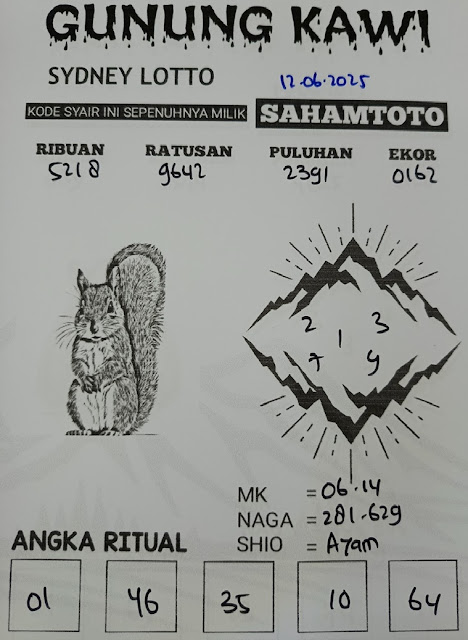 GUNUNG KAWI
SYDNEY LOTTO 12.06.2025
KODE SYAIR INI SEPENUHNYA MILIK SAHAMTOTO
RIBUAN RATUSAN PULUHAN EKOR
5218 9642 2391 0162
2 3
1
7 9
MK = 06.14
NAGA = 281-629
SHIO = Ayam
ANGKA RITUAL
01 46 35 10 64